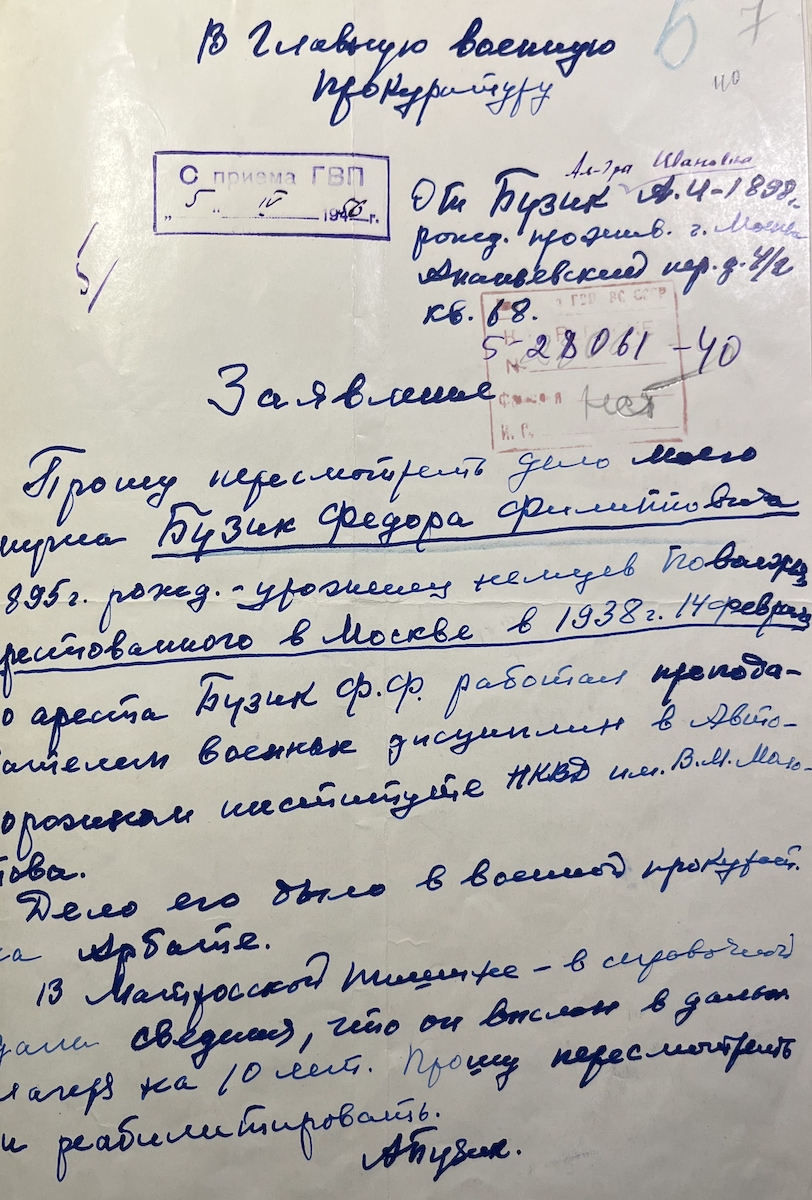 Б 7
В Главную военную
но
прокуратуру
С приема ГВП
„ 5 “ IV 1956 г.
Ал-дра Ивановна
От Бузик А.И - 1898г.
рожд. прожив. г. Москва
Ананьевский пер. д. 4/2
кв. 68.
5/
ГВП ВС СССР
5-28061-40
Заявление
нет
Прошу пересмотреть дело моего
мужа Бузик Федора Филипповича
895г. рожд. - уроженец немцев Поволжья
рестованного в Москве в 1938г. 14 феврал
о ареста Бузик Ф.Ф. работал препода-
ателем военных дисциплин в Авто-
орожном институте НКВД им. В.М. Моло-
това.
Дело его было в военной прокурат.
на Арбате.
В Матросской тишине - в справочной
дали сведения, что он выслан в дальн
лагеря на 10 лет. Прошу пересмотреть
и реабилитировать.
АБузик.